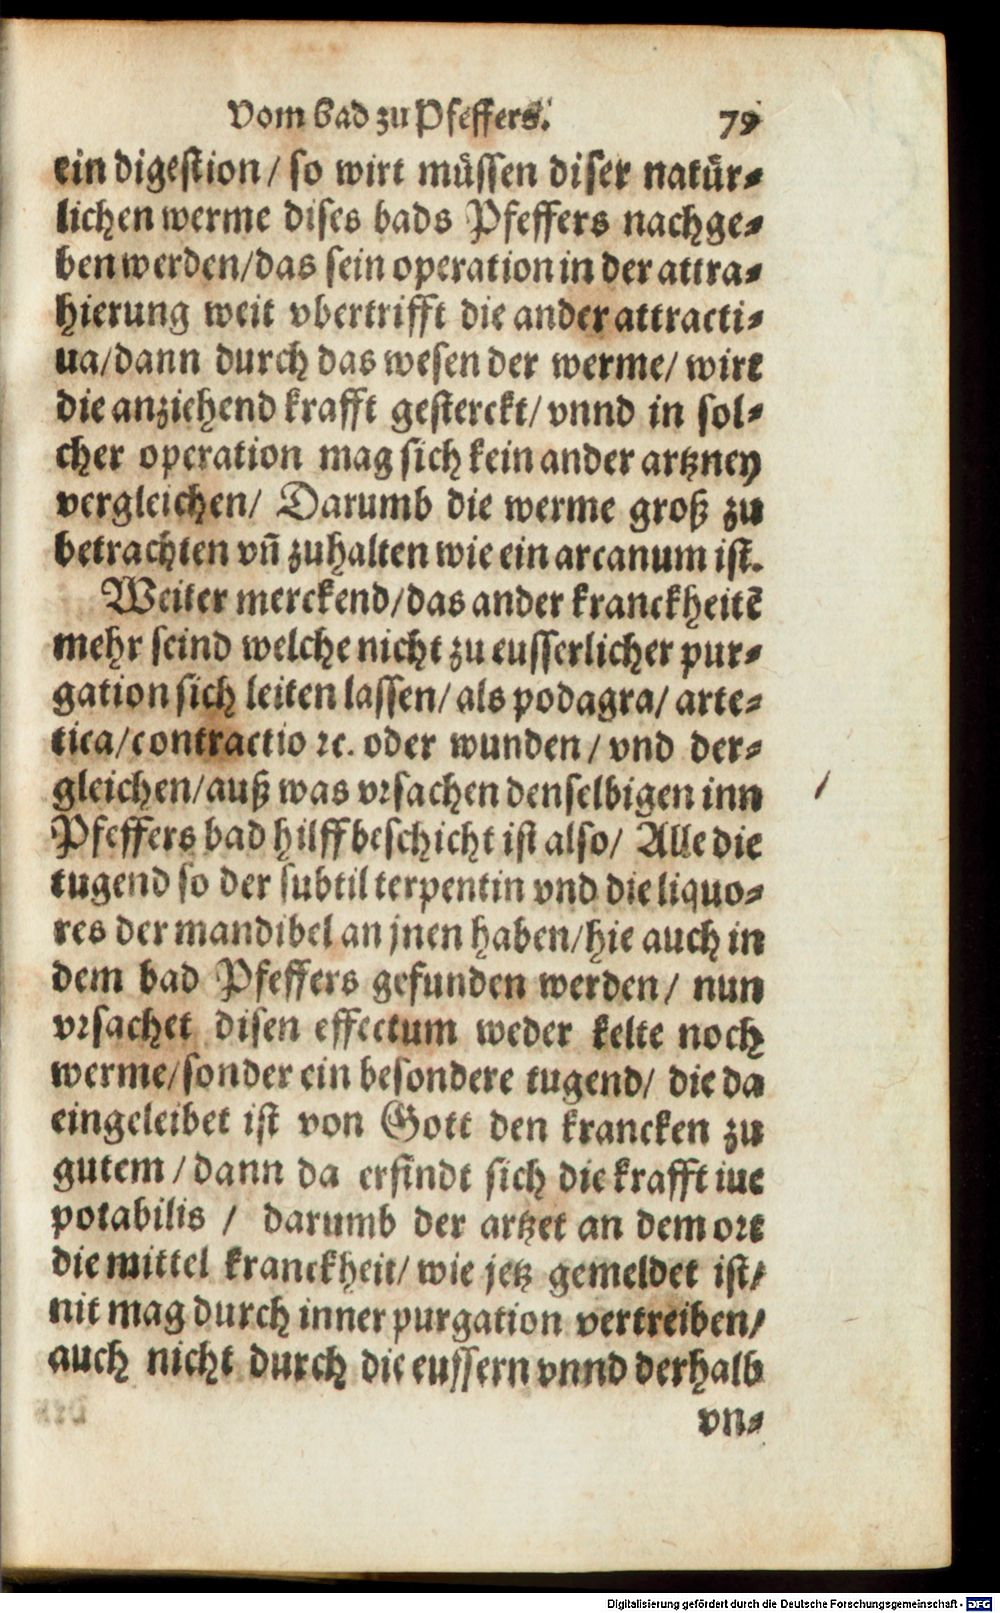 Vom bad zu Pfeffers. 79
ein digestion / so wirt müssen diser natür⸗
lichen werme dises bads Pfeffers nachge⸗
ben werden/das sein operation in der attra⸗
hierung weit vbertrifft die ander attracti⸗
ua/dann durch das wesen der werme/ wirt
die anziehend krafft gesterckt/ vnnd in sol⸗
cher operation mag sich kein ander artzney
vergleichen/ Darumb die werme groß zu
betrachten vñ zuhalten wie ein arcanum ist.
Weiter merckend/das ander kranckheitē
mehr seind welche nicht zu eusserlicher pur⸗
gation sich leiten lassen/ als podagra/ arte⸗
tica/contractio ꝛc. oder wunden / vnd der⸗
gleichen/auß was vrsachen denselbigen inn
Pfeffers bad hilff beschicht ist also/ Alle die
tugend so der subtil terpentin vnd die liquo⸗
res der mandibel an jnen haben/hie auch in
dem bad Pfeffers gefunden werden/ nun
vrsachet disen effectum weder kelte noch
werme/sonder ein besondere tugend/ die da
eingeleibet ist von Gott den krancken zu
gutem / dann da erfindt sich die krafft iue
potabilis / darumb der artzet an dem ort
die mittel kranckheit/ wie jetz gemeldet ist/
nit mag durch inner purgation vertreiben/
auch nicht durch die eussern vnnd derhalb
vn⸗
Digitalisierung gefördert durch die Deutsche Forschungsgemeinschaft - DFG